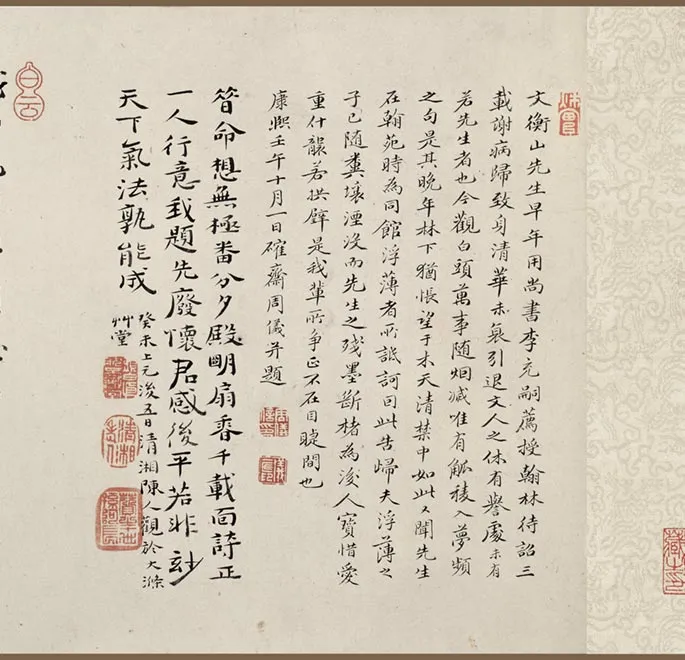 文衡山先生早年用尚書李充嗣薦授翰林待詔三
載謝病歸致身清華未衰引退文人之休有譽處未有
若先生者也今觀白頭萬事隨烟滅唯有觚稜入夢頻
之句是其晚年林下猶悵望于木天清禁中如此又聞先生
在翰苑時為同館浮薄者所詆訶曰此告歸夫浮薄之
子已隨糞壤湮沒而先生之殘墨斷楮為後人寶惜愛
重什襲若拱璧是我輩所爭正不在目睫間也
康熙壬午十月一日確齋周儀并題
命想無極番分夕殿明扇香千載面詩正
一人行意我題先廢懷君感後平若非玅
天下氣法孰能成
癸未上元後五日清湘陳人觀於大滌
艸堂